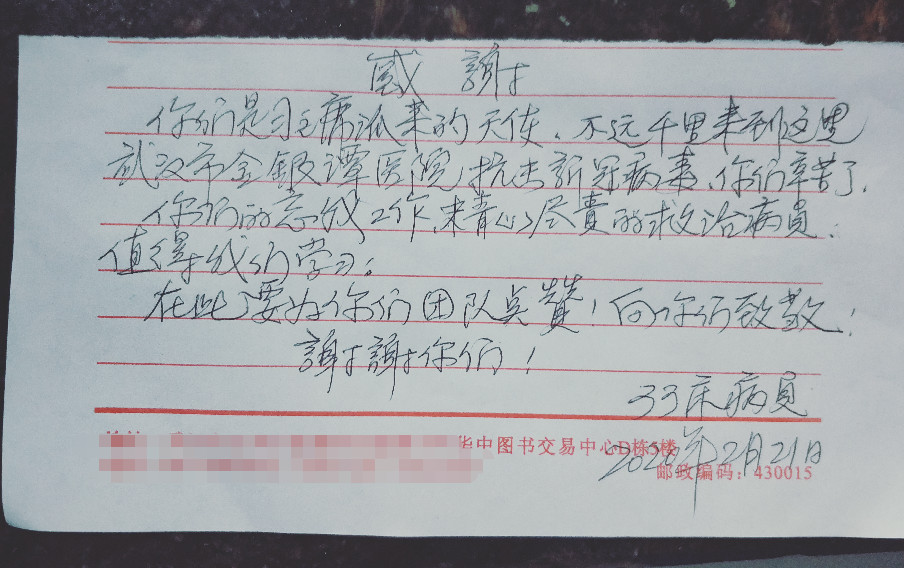 感 謝
你们是习主席派来的天使、不远千里来到这里
武汉市金银谭医院,抗击新冠病毒、你们辛苦了.
你们的忘我工作,来精心尽責的救治病員:
值得我们学习;
在此要为你们团队点赞!向你们致敬!
謝謝你们!
33床病員
华中图书交易中心D栋5楼
2020年2月21日
邮政编码:430015